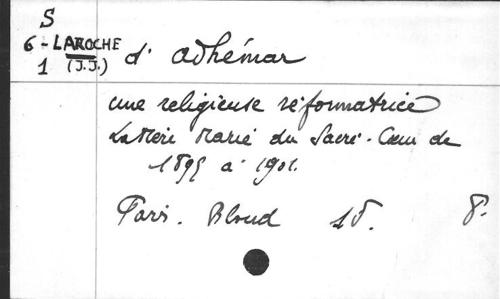 S
6 - LAROCHE d'Adhémar
1 (J.J.)
une religieuse réformatrice
La Mère Marie du Sacré-Cœur de
1895 à 1901.
Paris. Bloud 8.